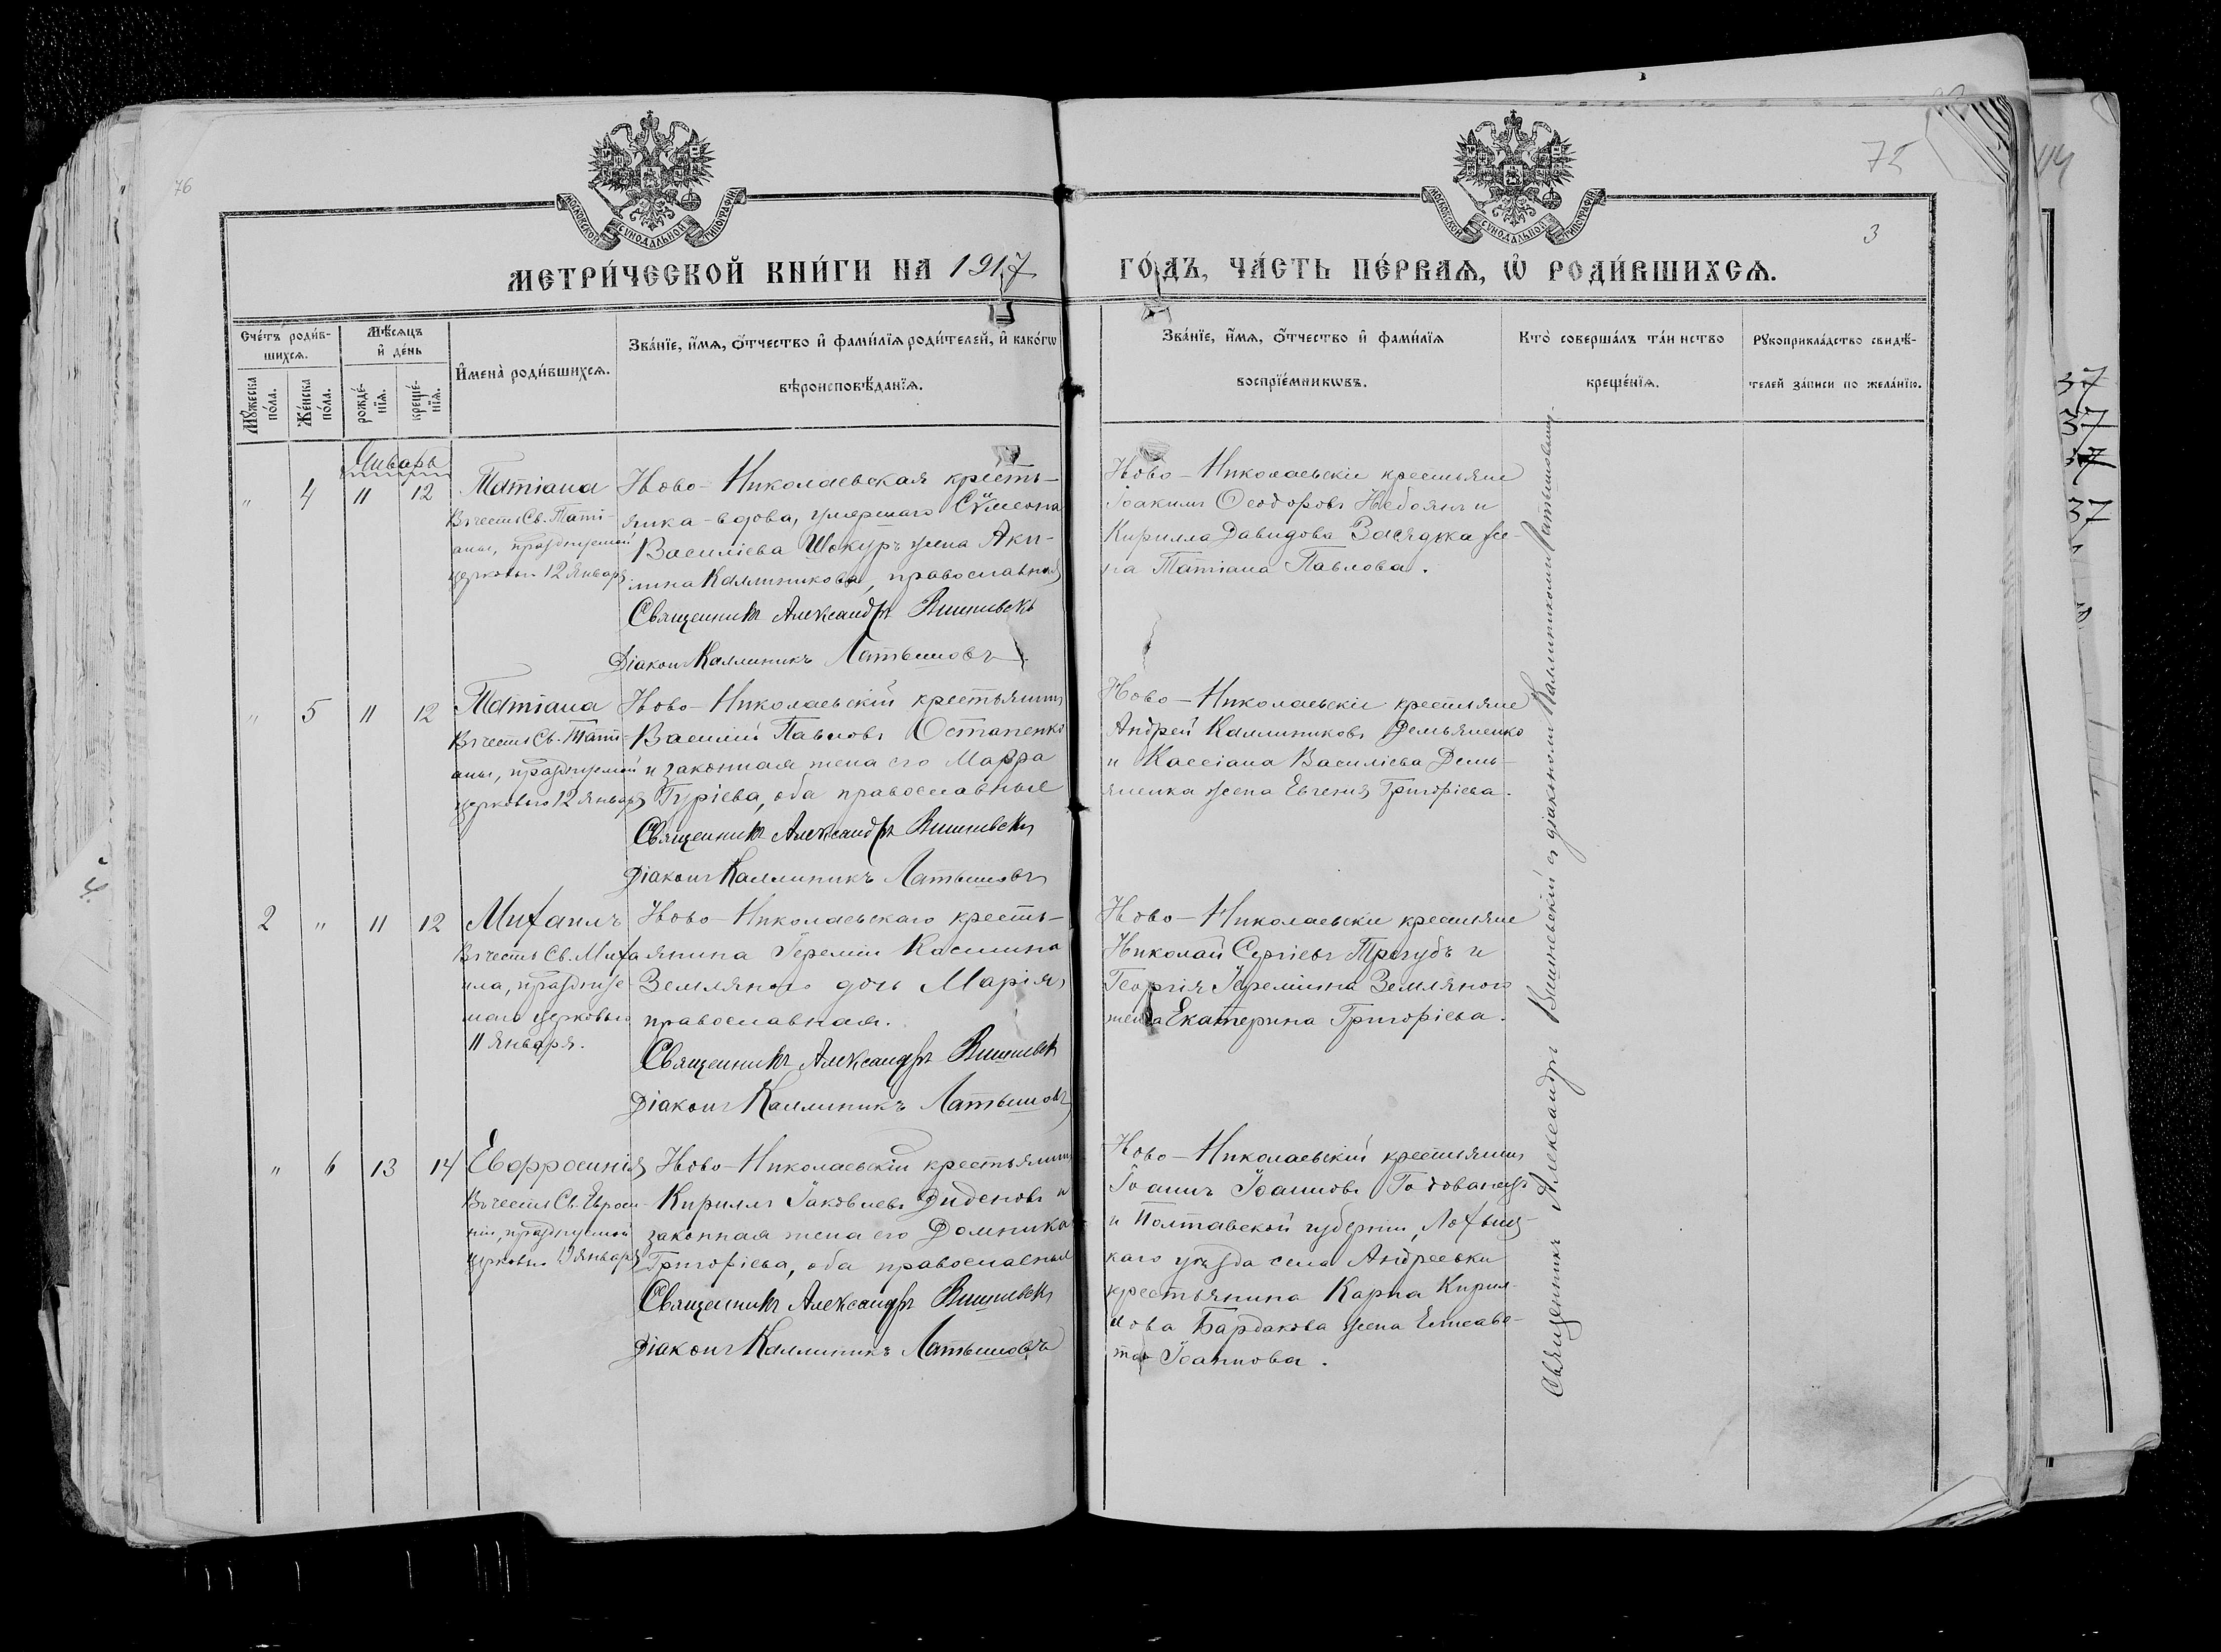 76
75
3
МОСКОВСКОЙ СѴНОДАЛЬНОЙ ТИПОГРАФІИ
МОСКОВСКОЙ СѴНОДАЛЬНОЙ ТИПОГРАФІИ
МЕТРИ́ЧЕСКОЙ КНИ́ГИ НА 1917
ГО́ДЪ, ЧА́СТЬ ПЕ́РВАѦ, Ѡ РОДИ́ВШИХСѦ.
Сче́тъ роди́в-
шихсѧ.
Мѣ́сѧцъ
и҆ де́нь
Мꙋ́жеска по́ла.
Же́нска по́ла.
рожде́-
нїѧ.
креще́-
нїѧ.
И҆мена̀ роди́вшихсѧ.
Зва́нїе, и҆́мѧ, ѻ҆́тчество и҆ фами́лїѧ роди́телей, и҆ како́гѡ
вѣроисповѣ́данїѧ.
Зва́нїе, и҆́мѧ, ѻ҆́тчество и҆ фами́лїѧ
воспрїе́мникѡвъ.
Кто̀ соверша́лъ та́инство
креще́нїѧ.
Рꙋкоприкла́дство свидѣ́-
телей за́писи по жела́нїю.
Январь
" 4 11 12
Татіана
Въ честь Св. Тати-
аны, празднуемой
церковью 12 Января
Ново-Николаевская кресть-
янка-вдова, умершаго Сѵмеона
Василіева Шокуръ жена Аки-
лина Каллиникова, православная
Священникъ Александръ Вишневск
Діаконъ Каллиникъ Латышовъ
Ново-Николаевскіе крестьяне
Іоакимъ Ѳеодоровъ и
Кирилла Давидова Засядька же-
на Татіана Павлова.
" 5 11 12
Татіана
Въ честь Св. Тати-
аны, празднуемой
церковью 12 Января
Ново-Николаевскій крестьянинъ
Василій Павловъ Остапенко
и законная жена его Марѳа
Гуріева, оба православные
Священникъ Александръ Вишневскі
Діаконъ Каллиникъ Латышовъ
Ново-Николаевскіе крестьяне
Андрей Каллиниковъ Демьяненко
и Кассіана Василіева Демь-
яненка жена Евгенія Григоріева.
2 " 11 12
Михаилъ
Въ честь Св. Миха
ила, празднуе-
маго церковью
11 Января.
Ново-Николаевскаго кресть-
янина Іереміи Касьяна
Земляного дочь Марія,
православная.
Священникъ Александръ Вишневск
Діаконъ Каллиникъ Латышовъ
Ново-Николаевскіе крестьяне
Николай Сергіевъ Трегубъ и
Георгія Іереміина Земляного
жена Екатерина Григоріева.
" 6 13 14
Евфросинія
Въ честь Св. Евроси-
ніи, празднуемой
церковью Января
Ново-Николаевскій крестьянинъ
Кириллъ Іаковлевъ Диденовъ и
законная жена его Домника
Григоріева, оба православные
Священникъ Александръ Вишневскі
Діаконъ Каллиникъ Латышовъ
Ново-Николаевскій крестьянинъ
Іоаннъ Іоанновъ Годованецъ
и Полтавской губерніи, Лохвиц-
каго уѣзда села Андреевки
крестьянина Карпа Кирил-
лова Бардакова жена Елисаве-
та Іоаннова.
Священникъ Александръ Вишневскій съ діакономъ Каллиникомъ Латышовымъ.
37
37
37
37